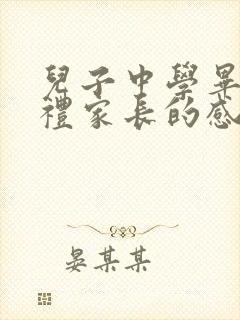 兒子中學畢
禮家長的感
晏某某